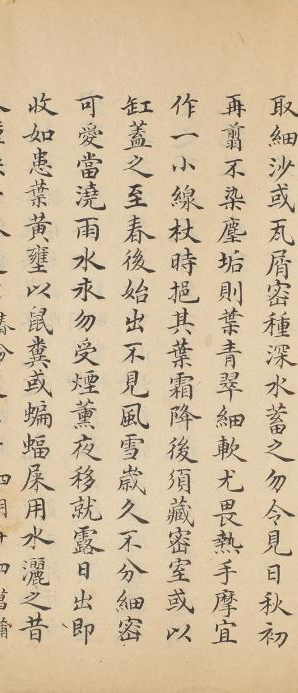 取細沙或瓦屑密種深水蓄之勿令見日秋初
再翦不染塵垢則葉青翠細軟尤畏熱手摩宜
作一小線杖時挹其葉霜降後須藏密室或以
缸蓋之至春後始出不見風雪歲久不分細密
可愛當澆雨水永勿受煙薰夜移就露日出即
收如患葉黃壅以鼠糞或蝙蝠屎用水灑之昔
四月十四菖蒲